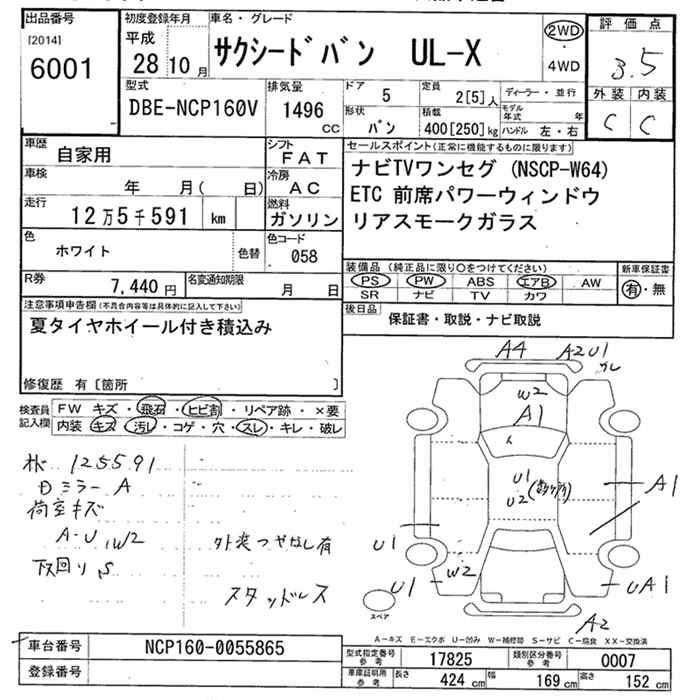 出品番号
[2014]
6001
初度登録年月
平成
28 10 月
車名・グレード
サクシードバン UL-X
2WD
・
4WD
評価点
3.5
外装 内装
C C
型式
DBE-NCP160V
排気量
1496
CC
ドア
5
定員
2[5]人
形状
バン
積載
400[250]kg
ディーラー・並行
モデル年式 年
ハンドル 左・右
車歴
自家用
シフト
FAT
車検
年 月( 日)
冷房
AC
走行
12万5千591 km
燃料
ガソリン
色
ホワイト
色替
色コード
058
R券
7,440円
名変通知期限
月 日
セールスポイント(正常に機能するものに限ります)
ナビTVワンセグ (NSCP-W64)
ETC 前席パワーウィンドウ
リアスモークガラス
装備品 (純正品に限り○をつけてください)
PS PW ABS エアB AW
SR ナビ TV カワ
新車保証書
有・無
後日品
保証書・取説・ナビ取説
注意事項申告欄(不具合内容等は具体的に記入して下さい)
夏タイヤホイール付き積込み
修復歴 有〔箇所 〕
検査員記入欄
FW キズ・飛石・ヒビ割・リペア跡・×要
内装 キズ・汚レ・コゲ・穴・スレ・キレ・破レ
125591
ミラー A
荷室キズ
A-U, W2
下回り S
外装つやなし有
スタッドレス
A4
A2U1
W2
A1
U1
U2
A1
U1
U1
W2
UA1
A2
スペア
A-キズ E-エクボ U-凹み W-補修跡 S-サビ C-腐食 XX-交換済
車台番号
NCP160-0055865
登録番号
型式指定番号
参考
17825
類別区分番号
参考
0007
車庫証明用
参考
長さ
424 cm
幅
169 cm
高さ
152 cm